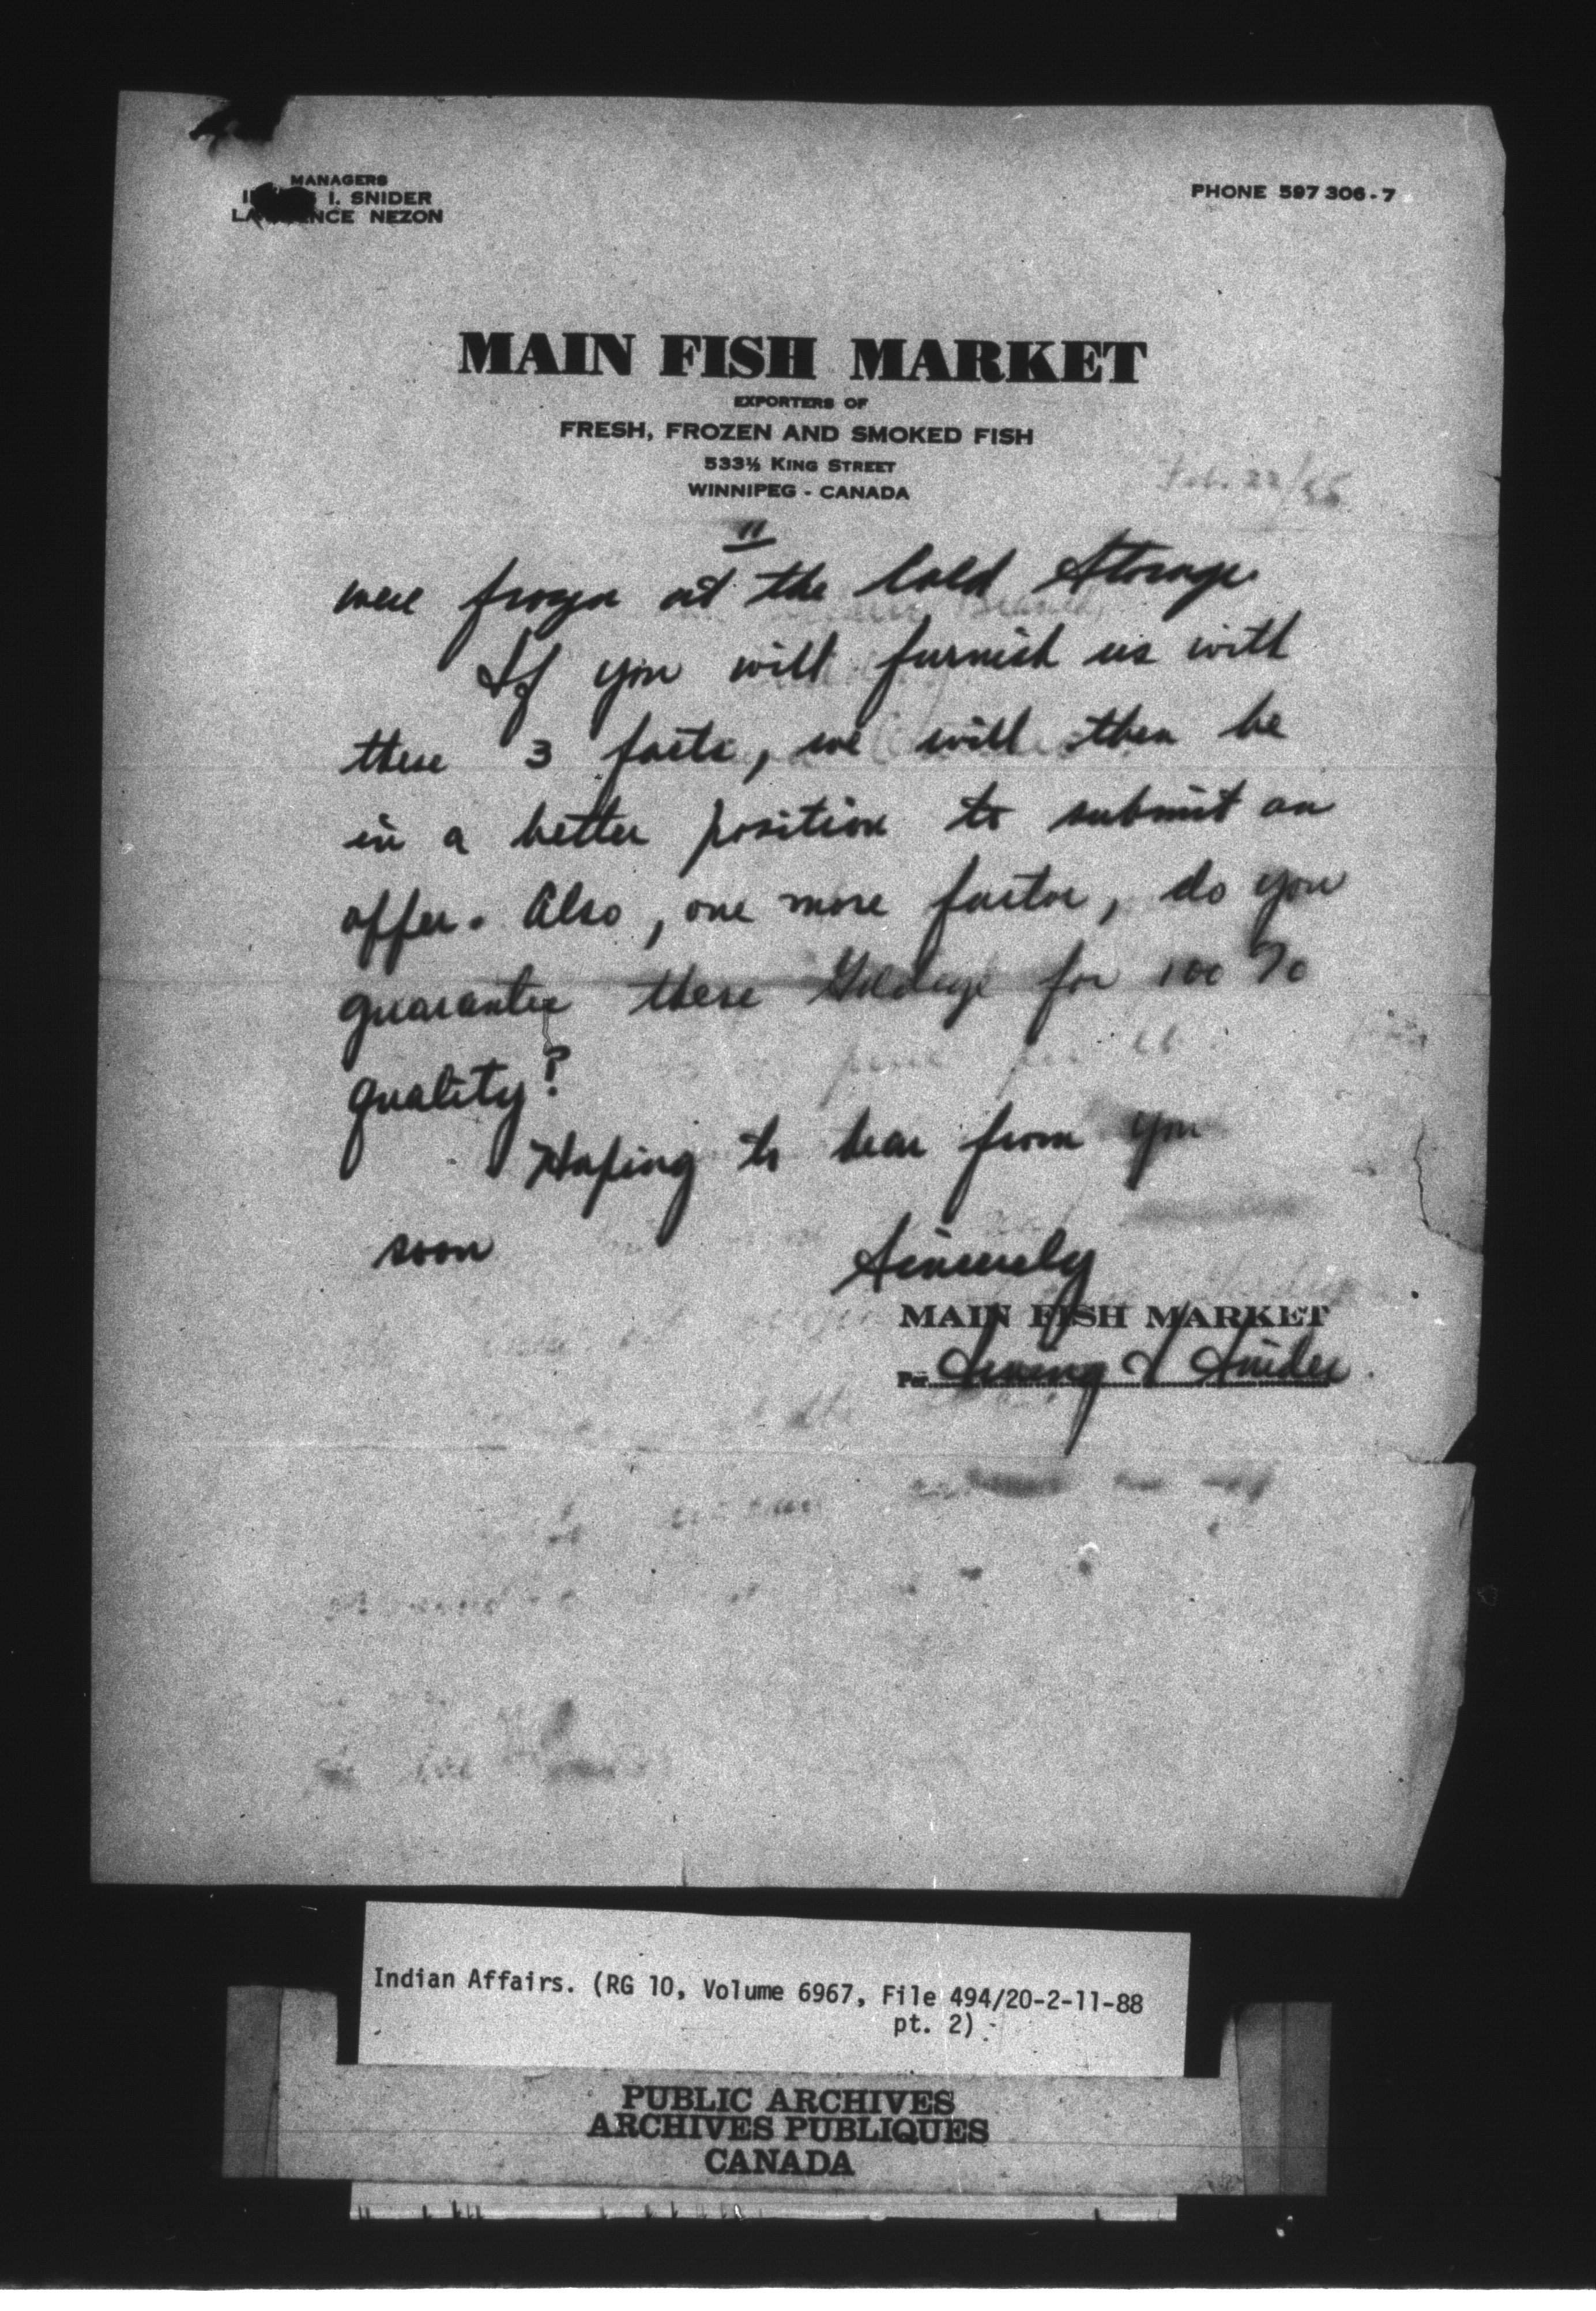 MANAGERS
I. SNIDER
NEZON
PHONE 597 306-7
MAIN FISH MARKET
EXPORTERS OF
FRESH, FROZEN AND SMOKED FISH
533½ KING STREET
WINNIPEG - CANADA
Feb. 22/
"
were frozen at the Cold Storage.
If you will furnish us with
these 3 facts, we will then be
in a better position to submit an
offer. Also, one more factor, do you
guarantee these Goldeye for 100%
quality?
Hoping to hear from you
soon
Sincerely
MAIN FISH MARKET
Per Irving I Snider
Indian Affairs. (RG 10, Volume 6967, File 494/20-2-11-88
pt. 2)
PUBLIC ARCHIVES
ARCHIVES PUBLIQUES
CANADA